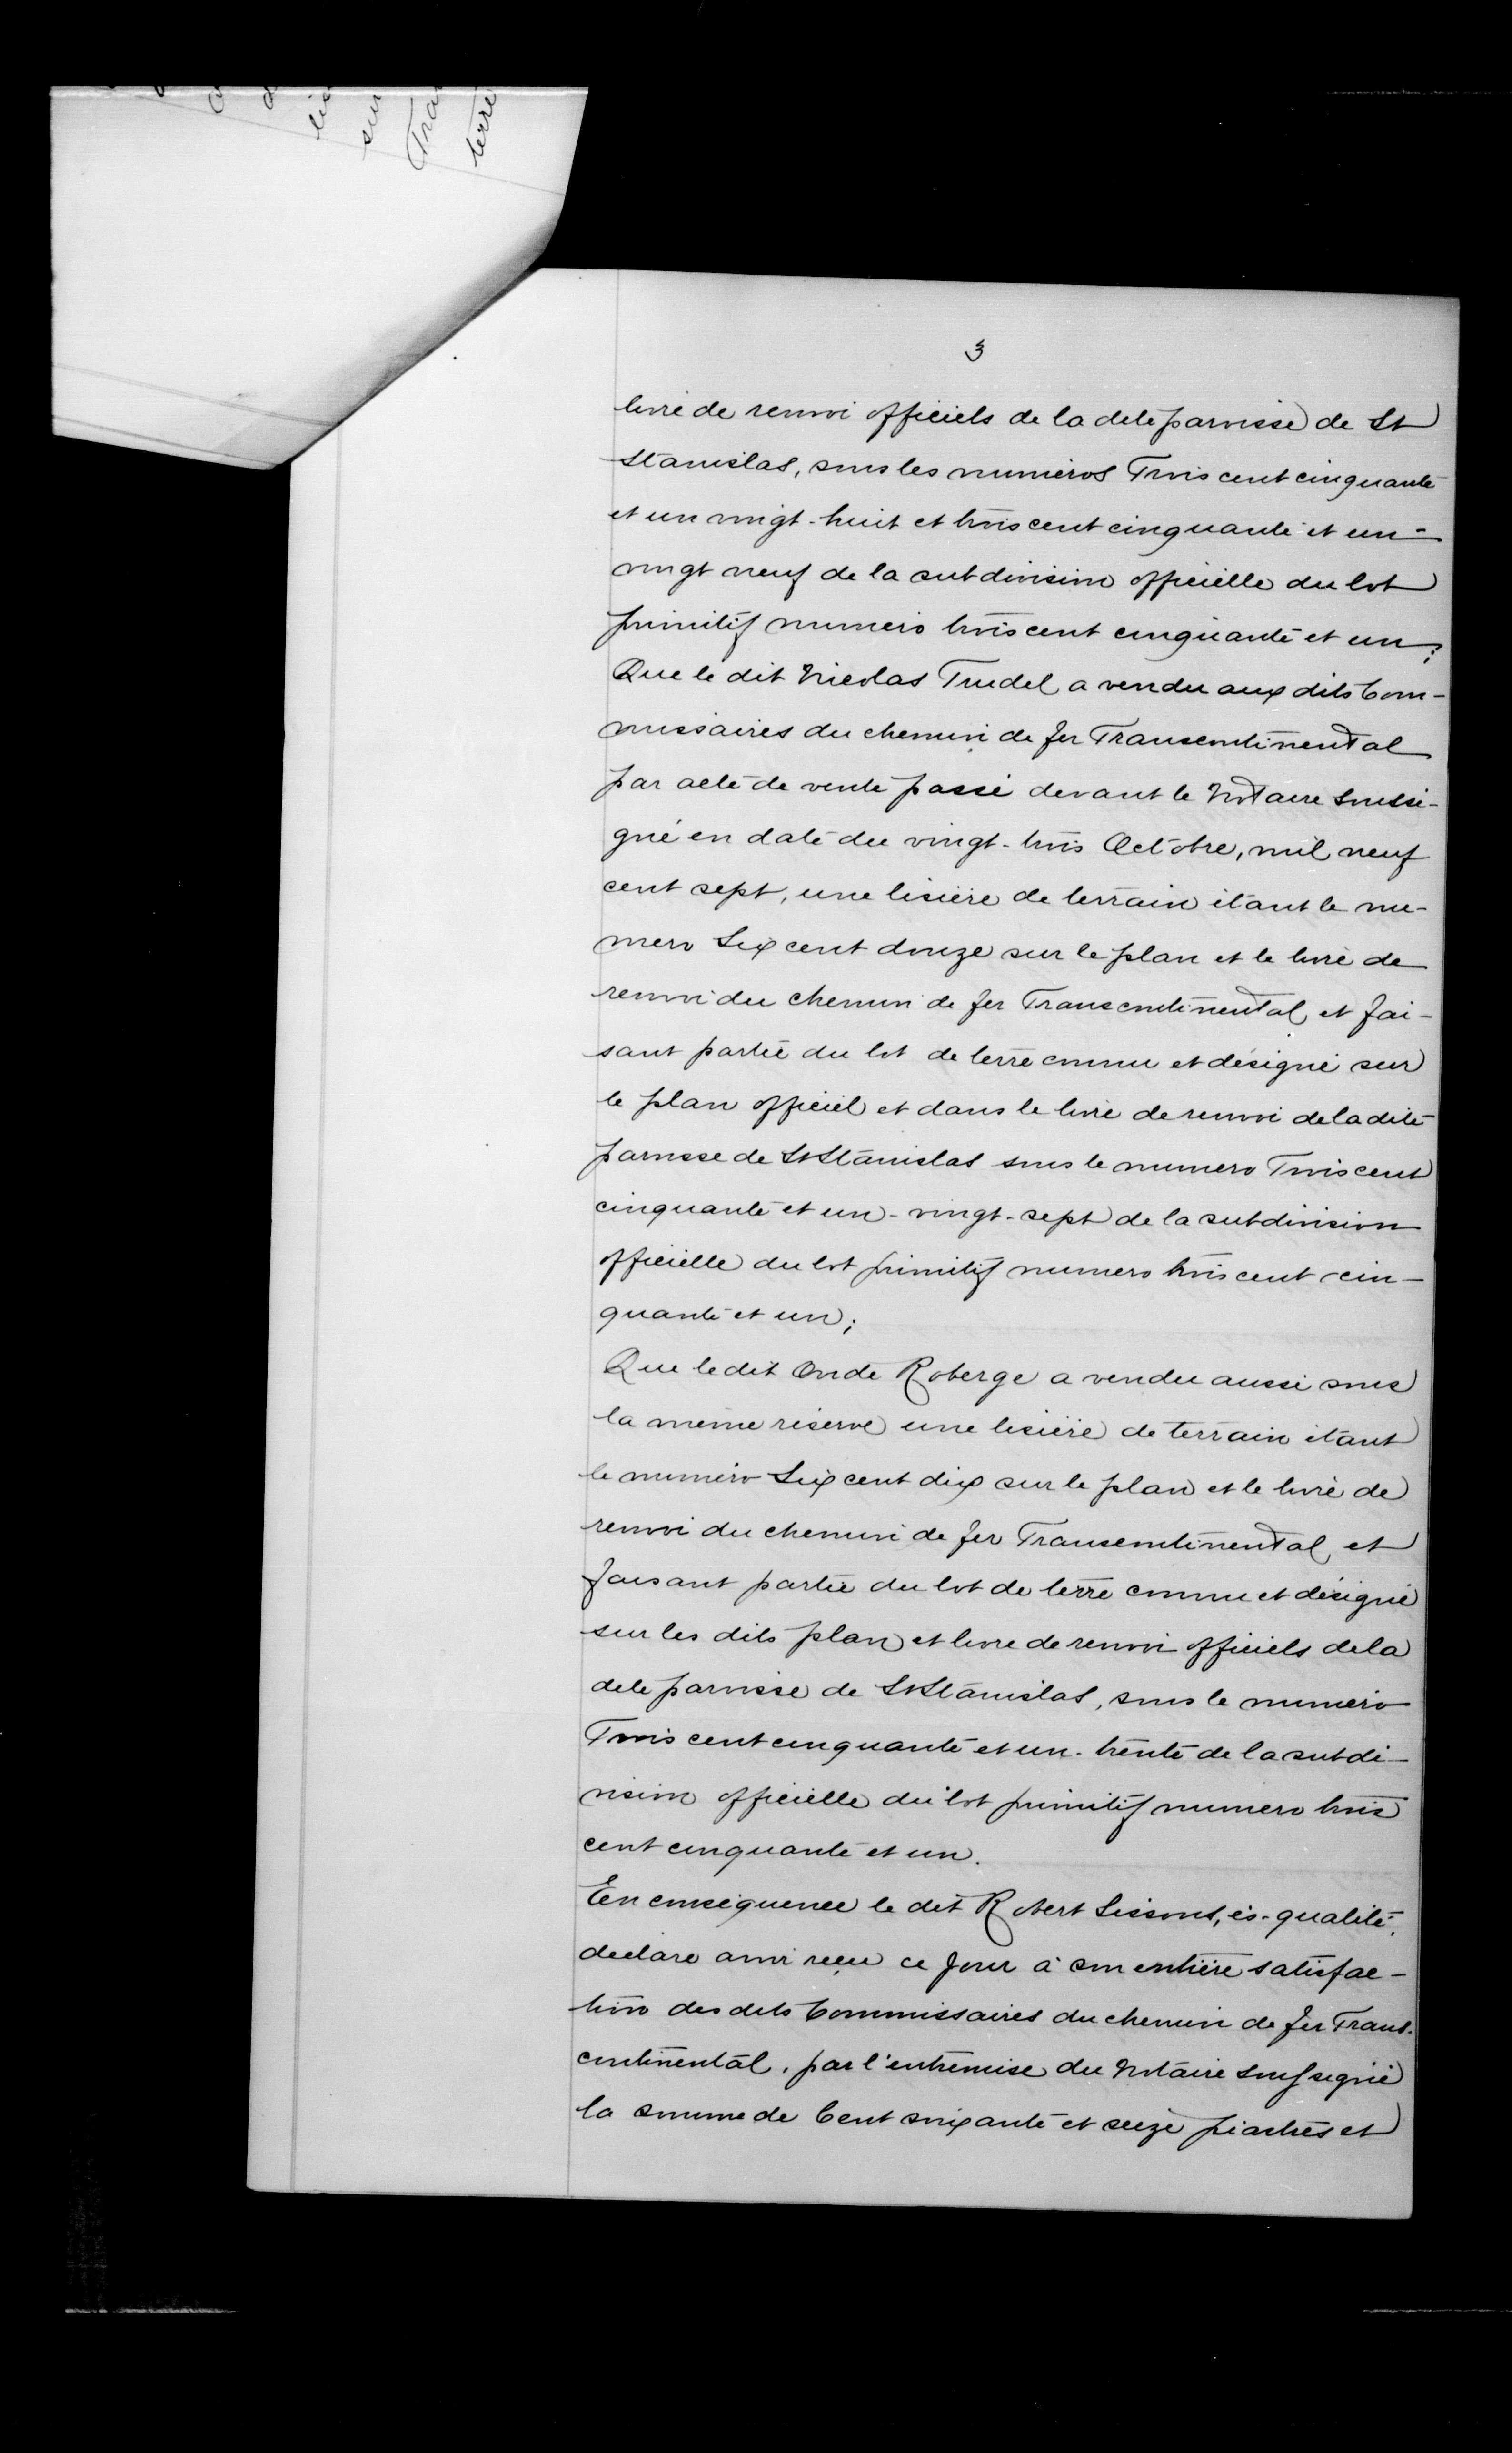 3
livre de renvoi officiels de la dite paroisse de St
Stanislas, sous les numéros Trois cent cinquante
et un vingt-huit et trois cent cinquante et un-
vingt neuf de la subdivision officielle du lot
primitif numéro trois cent cinquante et un;
Que le dit Nicolas Trudel a vendu aux dits Com-
missaires du chemin de fer Transcontinental
par acte de vente passé devant le Notaire soussi-
gné en date du vingt-trois Octobre, mil neuf
cent sept, une lisière de terrain étant le nu-
mero Six cent douze sur le plan et le livre de
renvoi du chemin de fer Transcontinental et fai-
sant partie du lot de terre connu et désigné sur
le plan officiel et dans le livre de renvoi de la dite
paroisse de St Stanislas sous le numero Trois cent
cinquante et un-vingt-sept de la subdivision
officielle du lot primitif numero trois cent cin-
quante et un;
Que le dit Onde Roberge a vendu aussi sous
la même réserve une lisière de terrain étant
le numéro Six cent dix sur le plan et le livre de
renvoi du chemin de fer Transcontinental et
faisant partie du lot de terre connu et désigné
sur les dits plan et livre de renvoi officiels de la
dite paroisse de St Stanislas, sous le numéro
Trois cent cinquante et un-trente de la subdi-
vision officielle du lot primitif numero trois
cent cinquante et un.
En conséquence le dit Robert Sissons, ès-qualité,
déclare avoir reçu ce jour à son entière satisfac-
tion des dits Commissaires du chemin de fer Trans-
continental, par l'entremise du Notaire soussigné
la somme de Cent soixante et seize piastres et
sur
Tra
terre